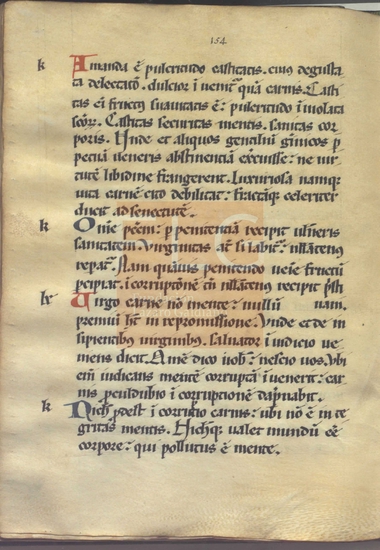 154
k Amanda ē pulcritudo castitatis. cuius degusta
ta delectatō. dulcior ī uenit̄ quā carnis. Casti
tas ei fructus suauitatis ē: pulcritudo īuiolata
scōr. Castitas securitas mentis. sanitas cor
poris. Vnde et aliquos gentiliū gīnicos p
petuā ueneris abstinentiā excuisse: ne uir
tutē libidine frangerent. Luxuriosa namq;
uita carnē cito debilitat: fractāq; celeriter
ducit. ad senectutē.
k Om̄e pc̄m: p penitentiā recipit uulneris
sanitatem. Virginitas at̄ si labit̄: nllaten;
repat̄. Nam quāuis penitendo uenie fructū
pcipiat. īcorruptōnē tn̄ nllaten; recipit pst̄
lv Virgo carne nō mente: nullū nam.
premiū ht̄ in repromissione. Vnde et de in
sipientib; virginib;. saluator ī iudicio ue
niens dicit. Amē dico uob: nescio uos. Vbi
eni iudicans mentē corruptā īuenerit: car
nis pculdubio īcorruptionē dāpnabit.
k Nich pdest īcorruptio carnis: ubi nō ē inte
gritas mentis. Nichq; ualet mundū eē
corpore: qui pollutus ē mente.